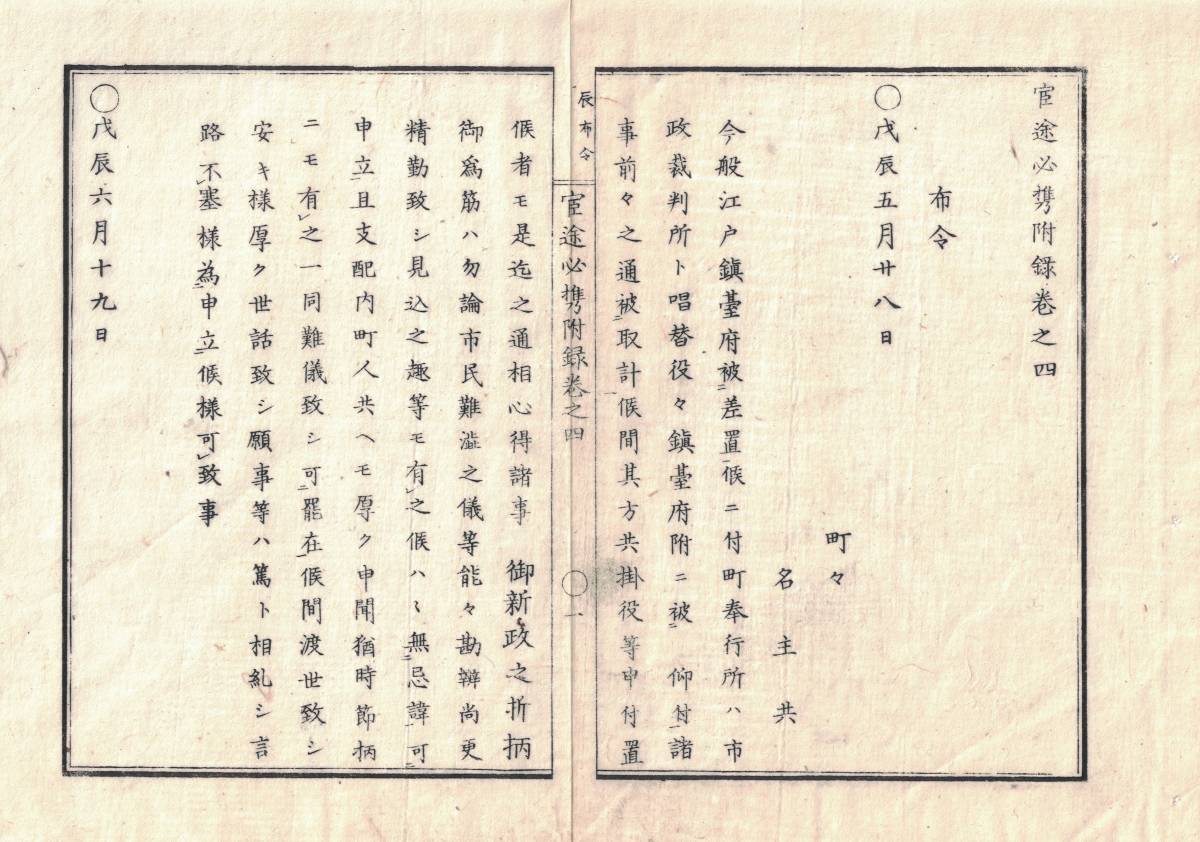 官途必携附録巻之四
布令
○戊辰五月廿八日
町々
名主共
今般江戸鎮臺府被差置候ニ付町奉行所ハ市
政裁判所ト唱替役々鎮臺府附ニ被　仰付諸
事前々之通被取計候間其方共掛役等申付置
辰布令
官途必携附録巻之四
○一
候者モ是迄之通相心得諸事　御新政之折柄
御為筋ハ勿論市民難澁之儀等能々勘辨尚更
精勤致シ見込之趣等モ有之候ハヽ無忌諱可
申立且支配内町人共ヘモ厚ク申聞猶時節柄
ニモ有之一同難儀致シ可罷在候間渡世致シ
安キ様厚ク世話致シ願事等ハ篤ト相糺シ言
路不塞様為申立候様可致事
○戊辰六月十九日